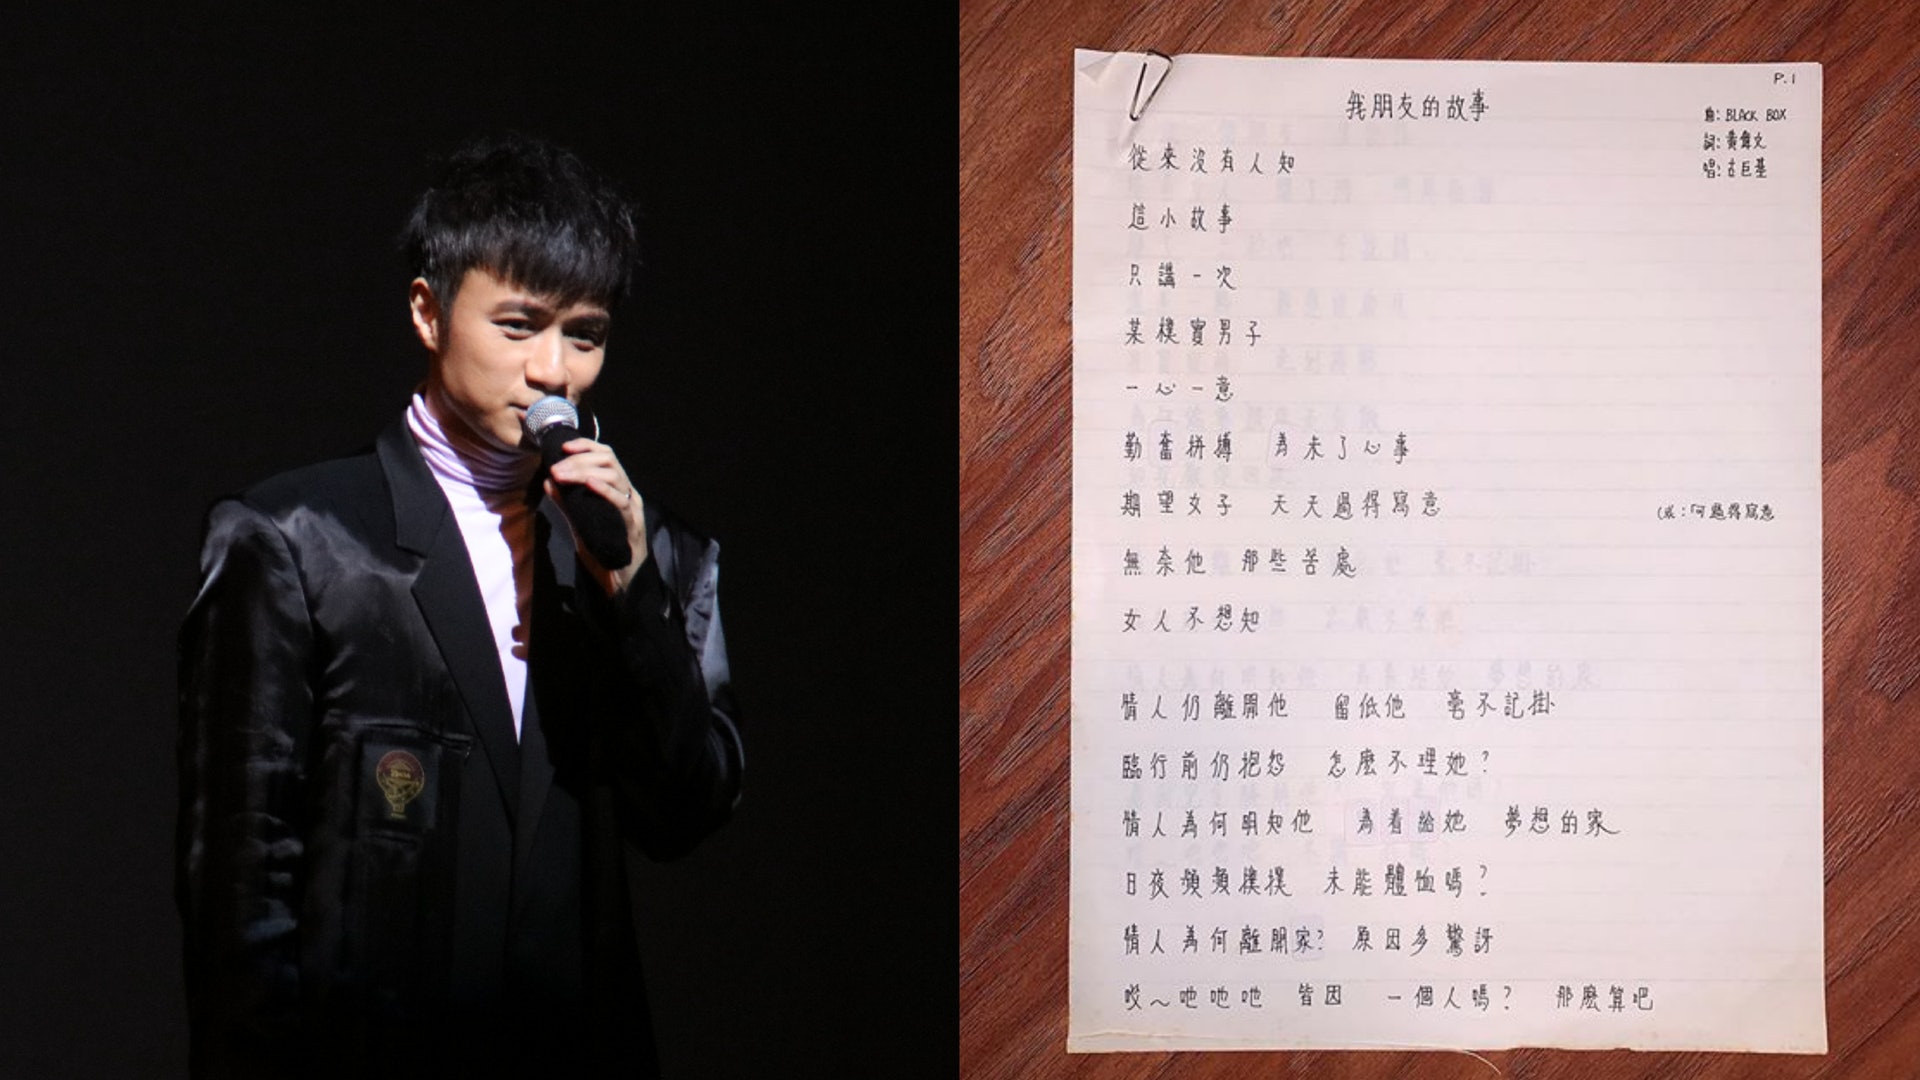 P.1
我朋友的故事
曲:BLACK BOX
詞:黃偉文
唱:古巨基
從來沒有人知
這小故事
只講一次
某樸實男子
一心一意
勤奮拼搏 為未了心事
期望女子 天天過得寫意
(或:可過得寫意
無奈他 那些苦處
女人不想知
情人仍離開他 留低他 毫不記掛
臨行前仍抱怨 怎麼不理她?
情人為何明知他 為着給她 夢想的家
日夜頻頻撲撲 未能體恤嗎?
情人為何離開家? 原因多驚訝
哎~吔吔吔 皆因 一個人嗎? 那麼算吧